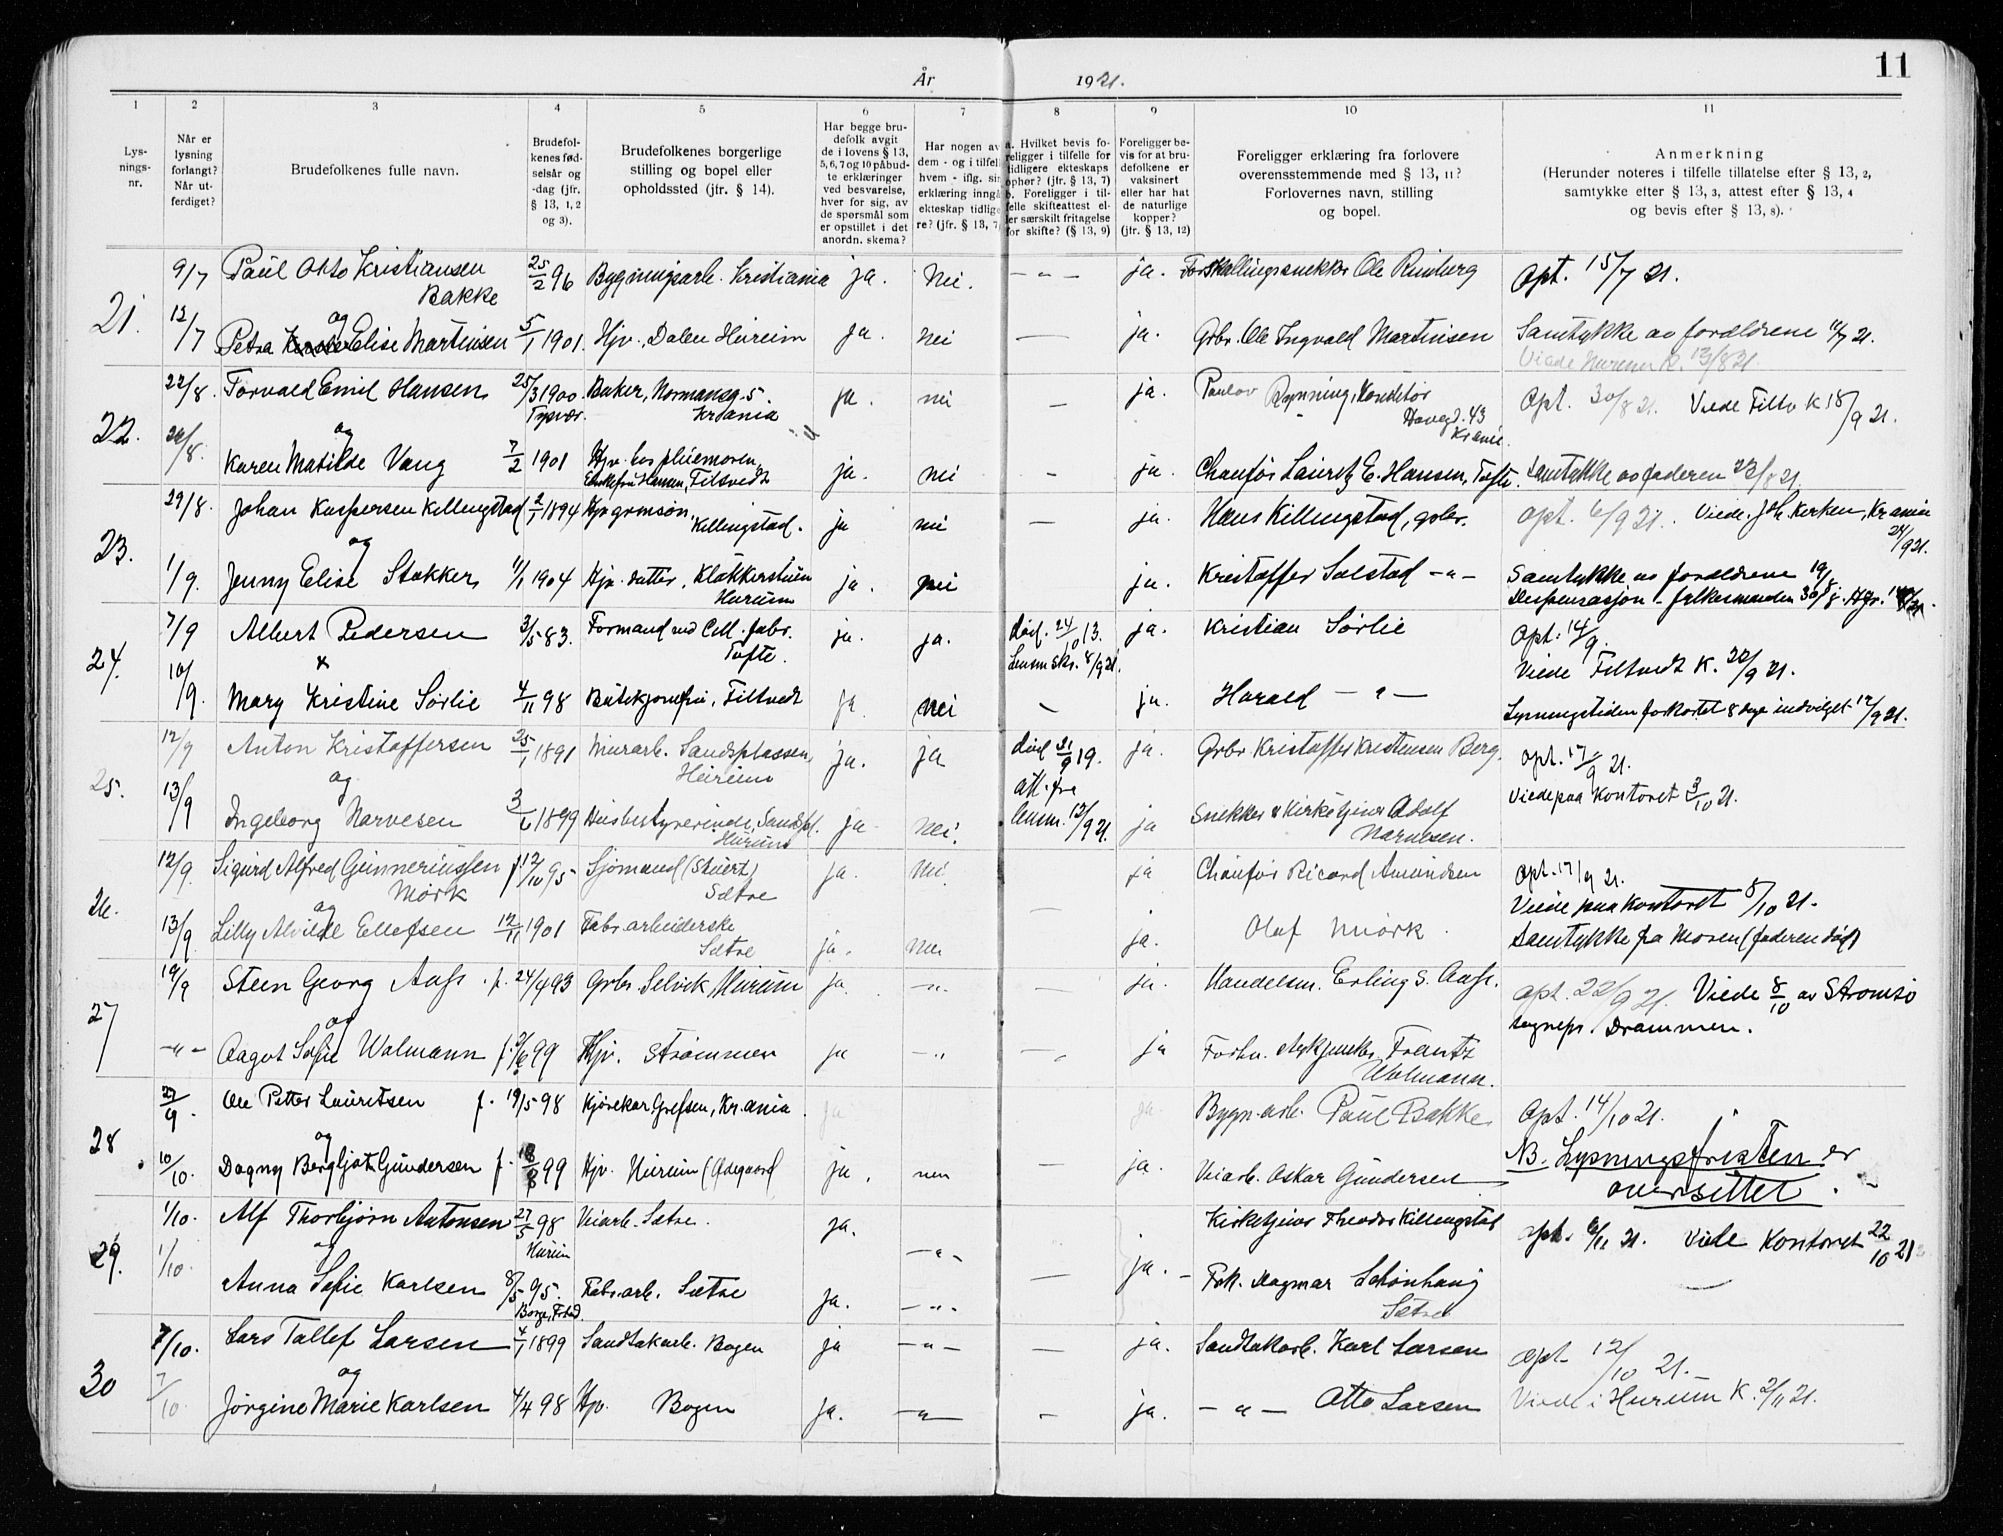 År 1921. 11
1 2 3 4 5 6 7 8 9 10 11
Lys-
nings-
nr.
Når er
lysning
forlangt?
Når ut-
ferdiget?
Brudefolkenes fulle navn.
Brudefol-
kenes fød-
selsår og
-dag (jfr.
§ 13, 1, 2
og 3).
Brudefolkenes borgerlige
stilling og bopel eller
opholdssted (jfr. § 14).
Har begge bru-
defolk avgit
de i lovens § 13,
5, 6, 7 og 10 påbud-
te erklæringer
ved besvarelse,
hver for sig, av
de spørsmål som
er opstillet i det
anordn. skema?
Har nogen av
dem - og i tilfel
hvem - iflg. sin
erklæring inngå
ekteskap tidlige
re? (jfr. § 13, 7
a. Hvilket bevis fo-
religger i tilfelle for
tidligere ekteskaps
ophør? (jfr. § 13, 7)
b. Foreligger i til-
felle skifteattest el-
ler særskilt fritagelse
for skifte? (§ 13, 9)
Foreligger be-
vis for at bru-
defolkene er
vaksinert
eller har hat
de naturlige
kopper?
(jfr. § 13, 12)
Foreligger erklæring fra forlovere
overensstemmende med § 13, 11?
Forlovernes navn, stilling
og bopel.
Anmerkning
(Herunder noteres i tilfelle tillatelse efter § 13, 2,
samtykke efter § 13, 3, attest efter § 13, 4
og bevis efter § 13, 8).
21. 9/7 Paul Otto Kristiansen 25/2 96 Bygningsarb. Kristiania ja. Nei. - " - ja. Ole Opt. 15/7 21.
Bakke
12/7 og
Petra Elise Martinsen 5/1 1901. Hjv., Dalen Hurum ja. nei — ja. Grbr. Ole Ingvald Martinsen Samtykke av forældrene 12/7 21.
Viede Hurum K. 13/8 21.
22. 22/8. Torvald Emil Hansen 25/3 1900. Baker, Normansg. 5. ja. nei — ja. Bynning, Konditor Opt. 30/8 21. Viede Filtv K 18/9 21.
Tysvær. Krania 43
Krania.
og
/8. Karen Matilde Vang 7/2 1901 Hjv. hos pleiemoren, ja. nei - ja. Chauför Lauritz E. Hansen, Tofte. Samtykke av faderen 23/8 21.
Enkefru Hansen, Filtvedt
23. 29/8. Johan Kaspersen Killingstad 2/1 1894 ja nei — ja. Hans Killingstad, grbr. Opt. 6/9 21. Viede. Joh. kirken, Krania
Killingstad. 24/9 21.
og
1/9. Jenny Elise Stokker 11/1 1904 Hjv. datter, ja. nei ja. Kristoffer Solstad - " - Samtykke av forældrene 19/8
Hurum Dispensasjon 30/8.
24. 7/9 Albert Pedersen 3/5 83. Formand ved Cell. fabr. ja. ja. död. 24/10 13. ja. Kristian Sörlie Opt. 14/9.
Tofte. Lensm skr. 8/9 21. Viede Filtvedt K. 22/9 21.
x
10/9. Mary Kristine Sörlie 4/11 98 Butikjomfru, Filtvedt ja nei - ja. Harald - " - Lysningstiden forkortet 8 dage indvilget 12/9 21.
25. 12/9 Anton Kristoffersen 25/1 1891 Murarb. Sandsplassen, ja. ja död 21/9 19. ja. Grbr. Kristoffer Kristensen Berg. Opt. 17/9 21.
Hurum att. fra Viede paa kontoret 3/10 21.
og
13/9 Ingeborg Narvesen 3/6 1899 Husbestyrerinde, Sandspl. ja nei. lensm. 12/9 21. ja Snekker & Kirketjener Adolf
Hurum Narvesen.
26. 12/9. Sigurd Alfred Gunneriussen f. 12/10 95 Sjömand (Stuert) ja. Nei ja Chauför Ricard Amundsen Opt. 17/9 21.
Mørk Sætre Viede paa kontoret 8/10 21.
og
13/9 Lilly Alvilde Ellefsen 12/11 1901 Fabr. arbeiderske ja. Nei — ja. Olaf Mörk. Samtykke fra Moren (faderen död)
Sætre
27 19/9 Steen Georg Aass. f. 24/4 93 Grbr. Selvik, Hurum ja - " - — ja. Handelsm. Erling S. Aass. Opt. 22/9 21. Viede 8/10 av Strömsö
sogneprs. Drammen.
og
- " - Aagot Sofie Wolmann f. 99 Hjv. Strömmen ja - " - ja Frantz
Wolmann.
28 27/9. Ole Petter Lauritsen f. 19/5 98 Kjörekar, Grefsen, Kr.ania. ja ja. Bygn. arb. Paul Bakke Opt. 14/10 21.
og
10/10. Dagny Bergljot Gundersen f. 18/8 99 Hjv. Hurum (Ödegaard ja. nei — ja. Veiarb. Oskar Gundersen NB. Lysningsfristen er
oversittet.
29. 1/10. Alf Thorbjørn Antonsen 27/5 98 Veiarb. Sætre. ja. - " - Kirketjener Theodor Killingstad opt. 21. Viede Kontoret 22/10 21
Hurum
og
1/10. Anna Sofie Karlsen 8/5 95. Fabr. arb. Sætre ja. - " - — ja. Frk. Dagmar Schönhaug
Borge, Sætre
30 7/10. Lars Tollef Larsen 4/1 1899 Sandtakarb. Bogen ja - " - — ja. Sandtakarb. Karl Larsen Opt. 12/10 21.
og
7/10 Jørgine Marie Karlsen 4/4 98 Hjv. Bogen ja. - " - - ja. - " - Otto Larsen Viede i Hurum K. 2/11 21.